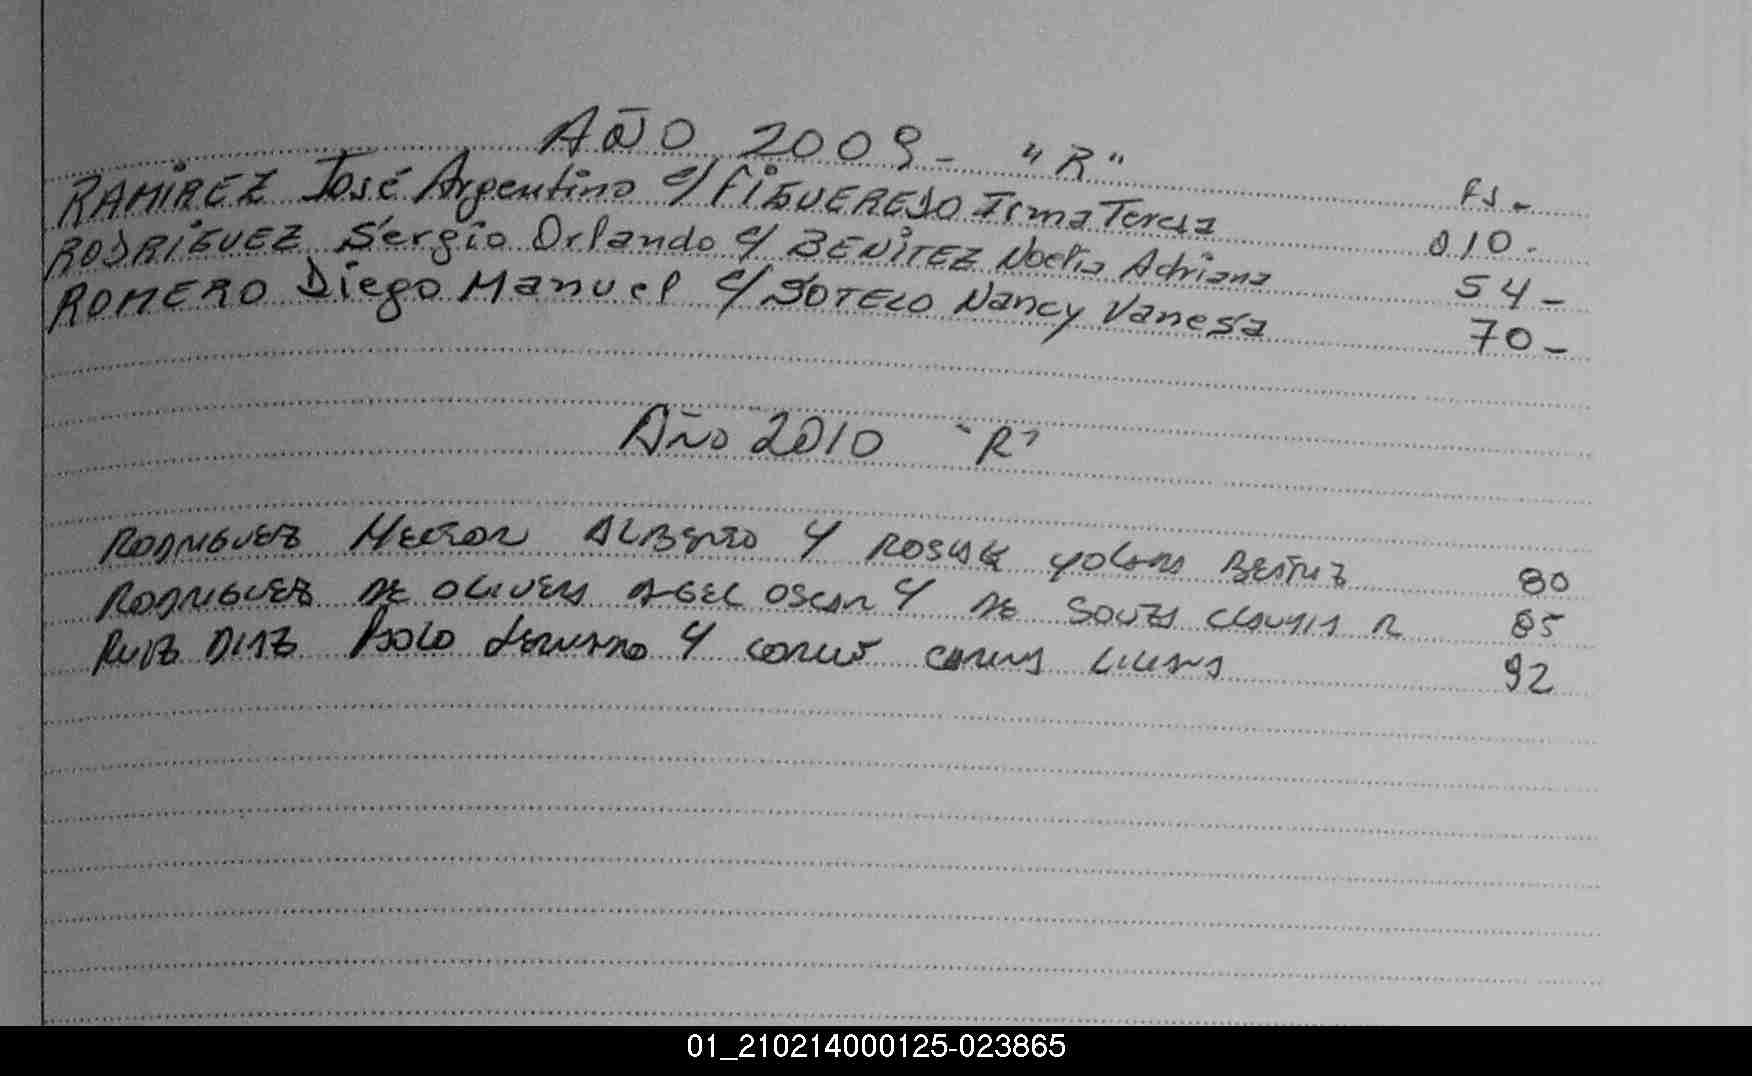 AÑO 2009- "R"
FS-
RAMIREZ José Argentino c/ FIGUEREDO Irma Teresa 010-
RODRIGUEZ Sergio Orlando c/ BENITEZ Noelia Adriana 54-
ROMERO Diego Manuel c/ SOTELO Nancy Vanesa 70-
Año 2010 "R"
RODRIGUEZ HECTOR ALBERTO Y YOLANDA BEATRIZ 80
RODRIGUEZ DE OLIVERA OSCAR Y DE SOUZA CLAUDIA R 85
RUIZ DIAZ Y LILIANA 92
01_210214000125-023865